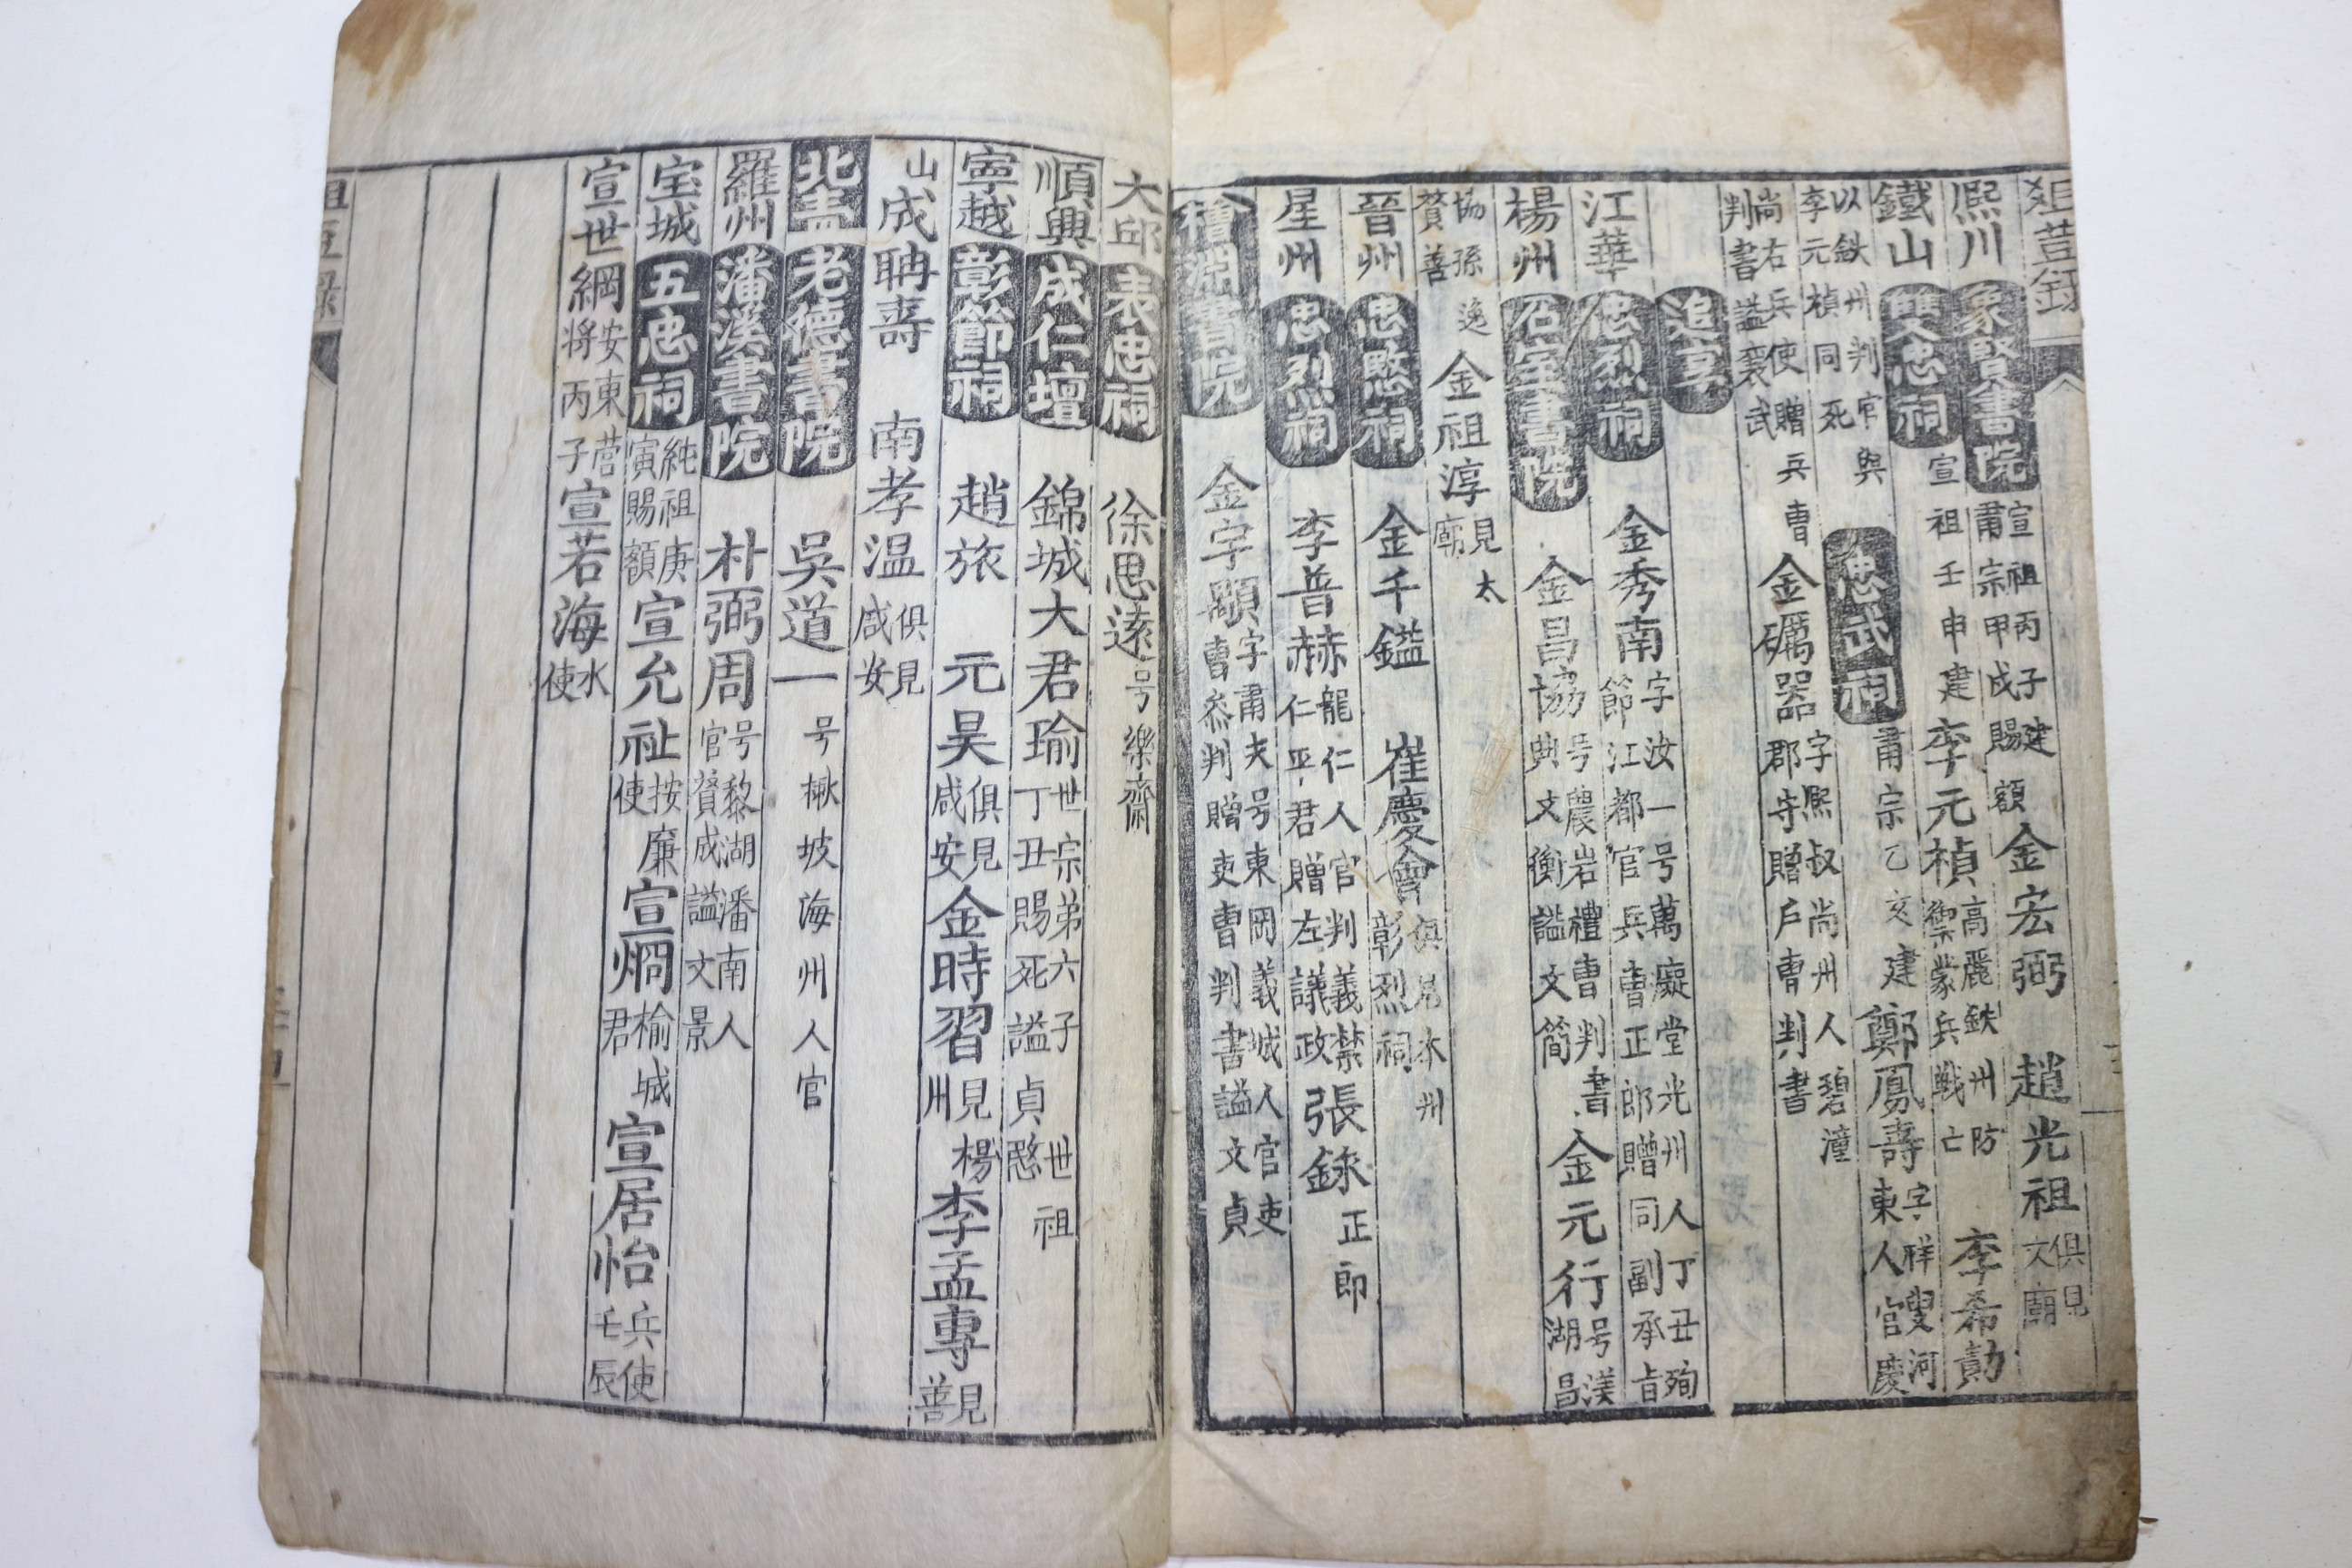 俎荳錄
熙川 象賢書院 宣祖丙子建 肅宗甲戌賜額 金宏弼 趙光祖 俱見文廟
鐵山 雙忠祠 宣祖壬申建 李元楨 高麗鉄州防禦蒙兵戦亡 李希勣
以鉄州判官與李元楨同死 忠武祠 肅宗乙亥建 鄭鳳壽 字祥叟河東人官慶
尚右兵使贈兵曹判書謚襄武 金礪器 字熙叔尚州人碧潼郡守贈戶曹判書
追享
江華 忠烈祠 金秀南 字汝一号萬癡堂光州人丁丑殉節江都官兵曹正郎贈同副承旨
楊州 石室書院 金昌協 号農岩禮曹判書典文衡謚文簡 金元行 号渼湖昌
協孫逸贊善 金祖淳 見太廟
晉州 忠愍祠 金千鎰 崔慶會 俱見木州彰烈祠
星州 忠烈祠 李普赫 龍仁人官判義禁仁平君贈左議政 張錄 正郎
檜淵書院 金字顒 字肅夫号東岡義城人官吏曹參判贈吏曹判書謚文貞
大邱 表忠祠 徐思遠 号樂齋
順興 成仁壇 錦城大君瑜 世宗弟六子世祖丁丑賜死謚貞愍
寧越 彰節祠 趙旅 元昊 俱見咸安 金時習 見楊州 李孟專 見善
山 成聃壽 南孝温 俱見咸安
北靑 老德書院 吳道一 号楸坡海州人官
羅州 潘溪書院 朴弼周 号黎湖潘南人官贊成謚文景
宝城 五忠祠 純祖庚寅賜額 宣允祉 按廉使 宣烱 榆城君 宣居怡 兵使壬辰
宣世綱 安東営将丙子 宣若海 水使